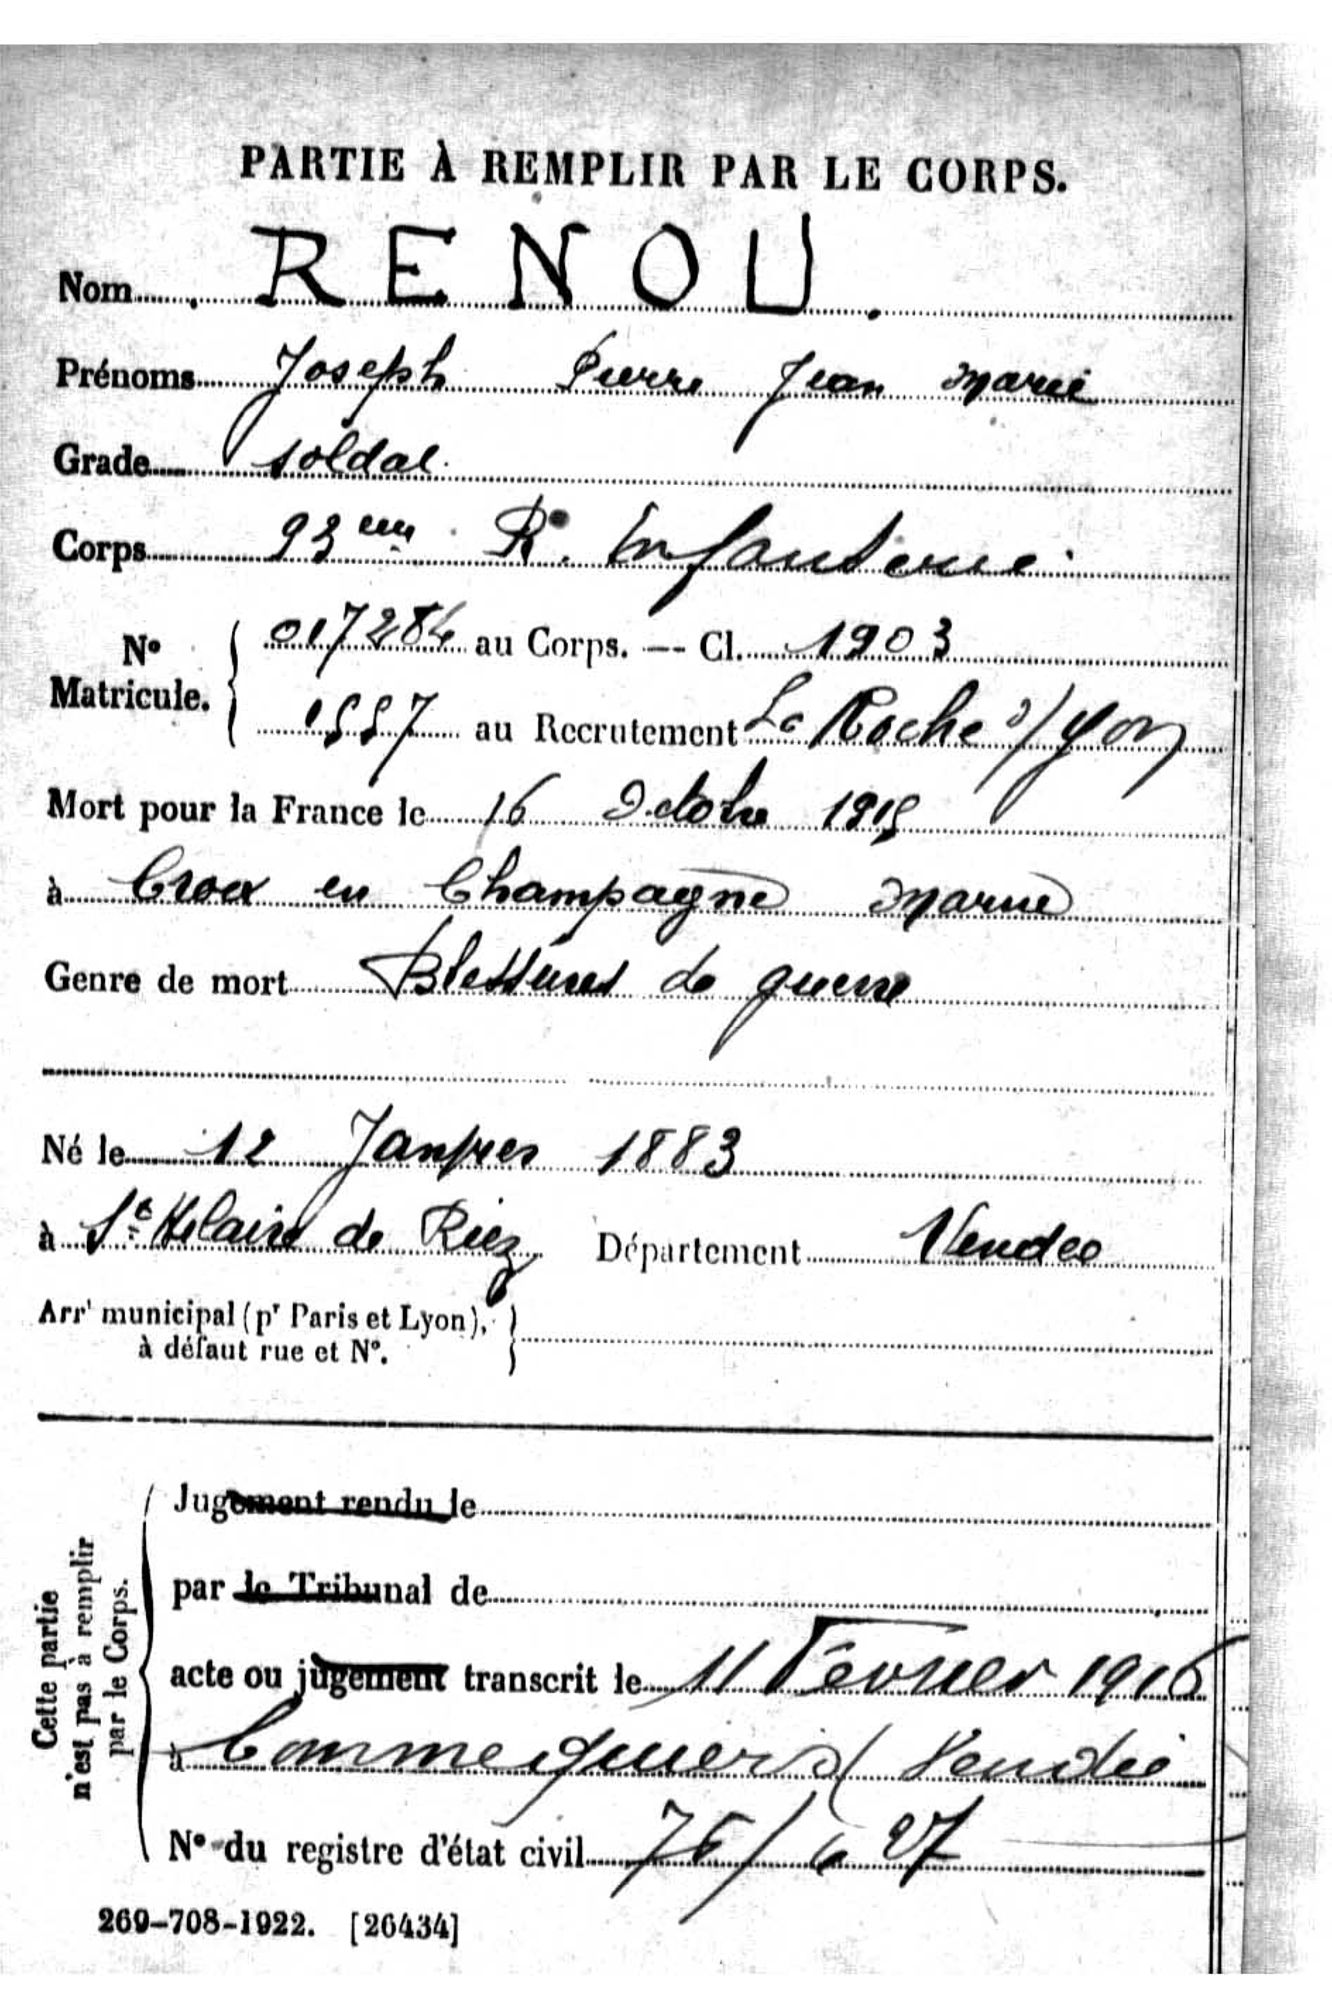 PARTIE À REMPLIR PAR LE CORPS.
Nom RENOU.
Prénoms Joseph Pierre Jean Marie
Grade soldat
Corps 93 eme R. Infanterie
N° Matricule. 017284 au Corps. — Cl. 1903
1557 au Recrutement La Roche s/ Yon
Mort pour la France le 16 Octobre 1915
à Croix en Champagne Marne
Genre de mort Blessures de guerre
Né le 12 Janvier 1883
à St Hilaire de Riez Département Vendée
Arrt municipal (pr Paris et Lyon),
à défaut rue et N°.
Cette partie n'est pas à remplir par le Corps.
Jugement rendu le
par le Tribunal de
acte ou jugement transcrit le 11 Février 1916
à Commequiers (Vendée
N° du registre d'état civil
269-708-1922. [26434]